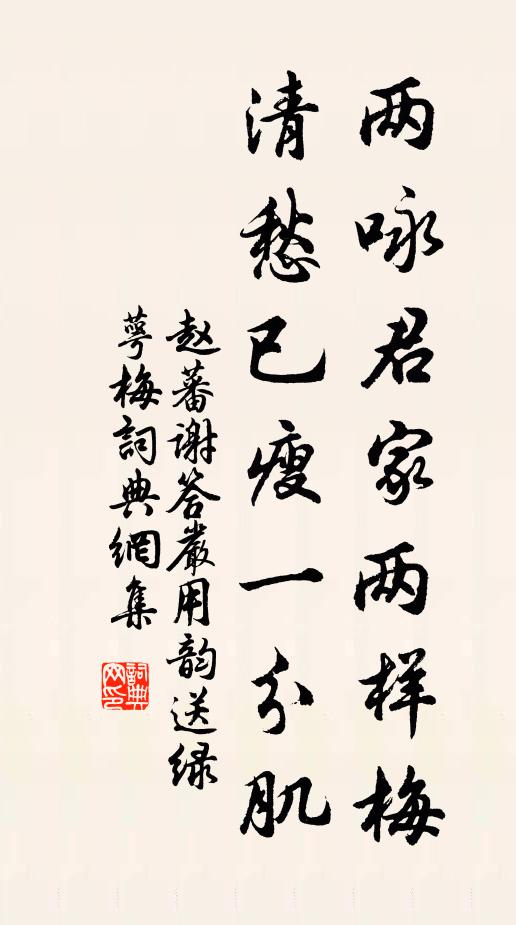 两咏君家两样梅
清愁已瘦一分肌
赵蕃谢答严用韵送绿
萼梅詞典網集
詞典网印